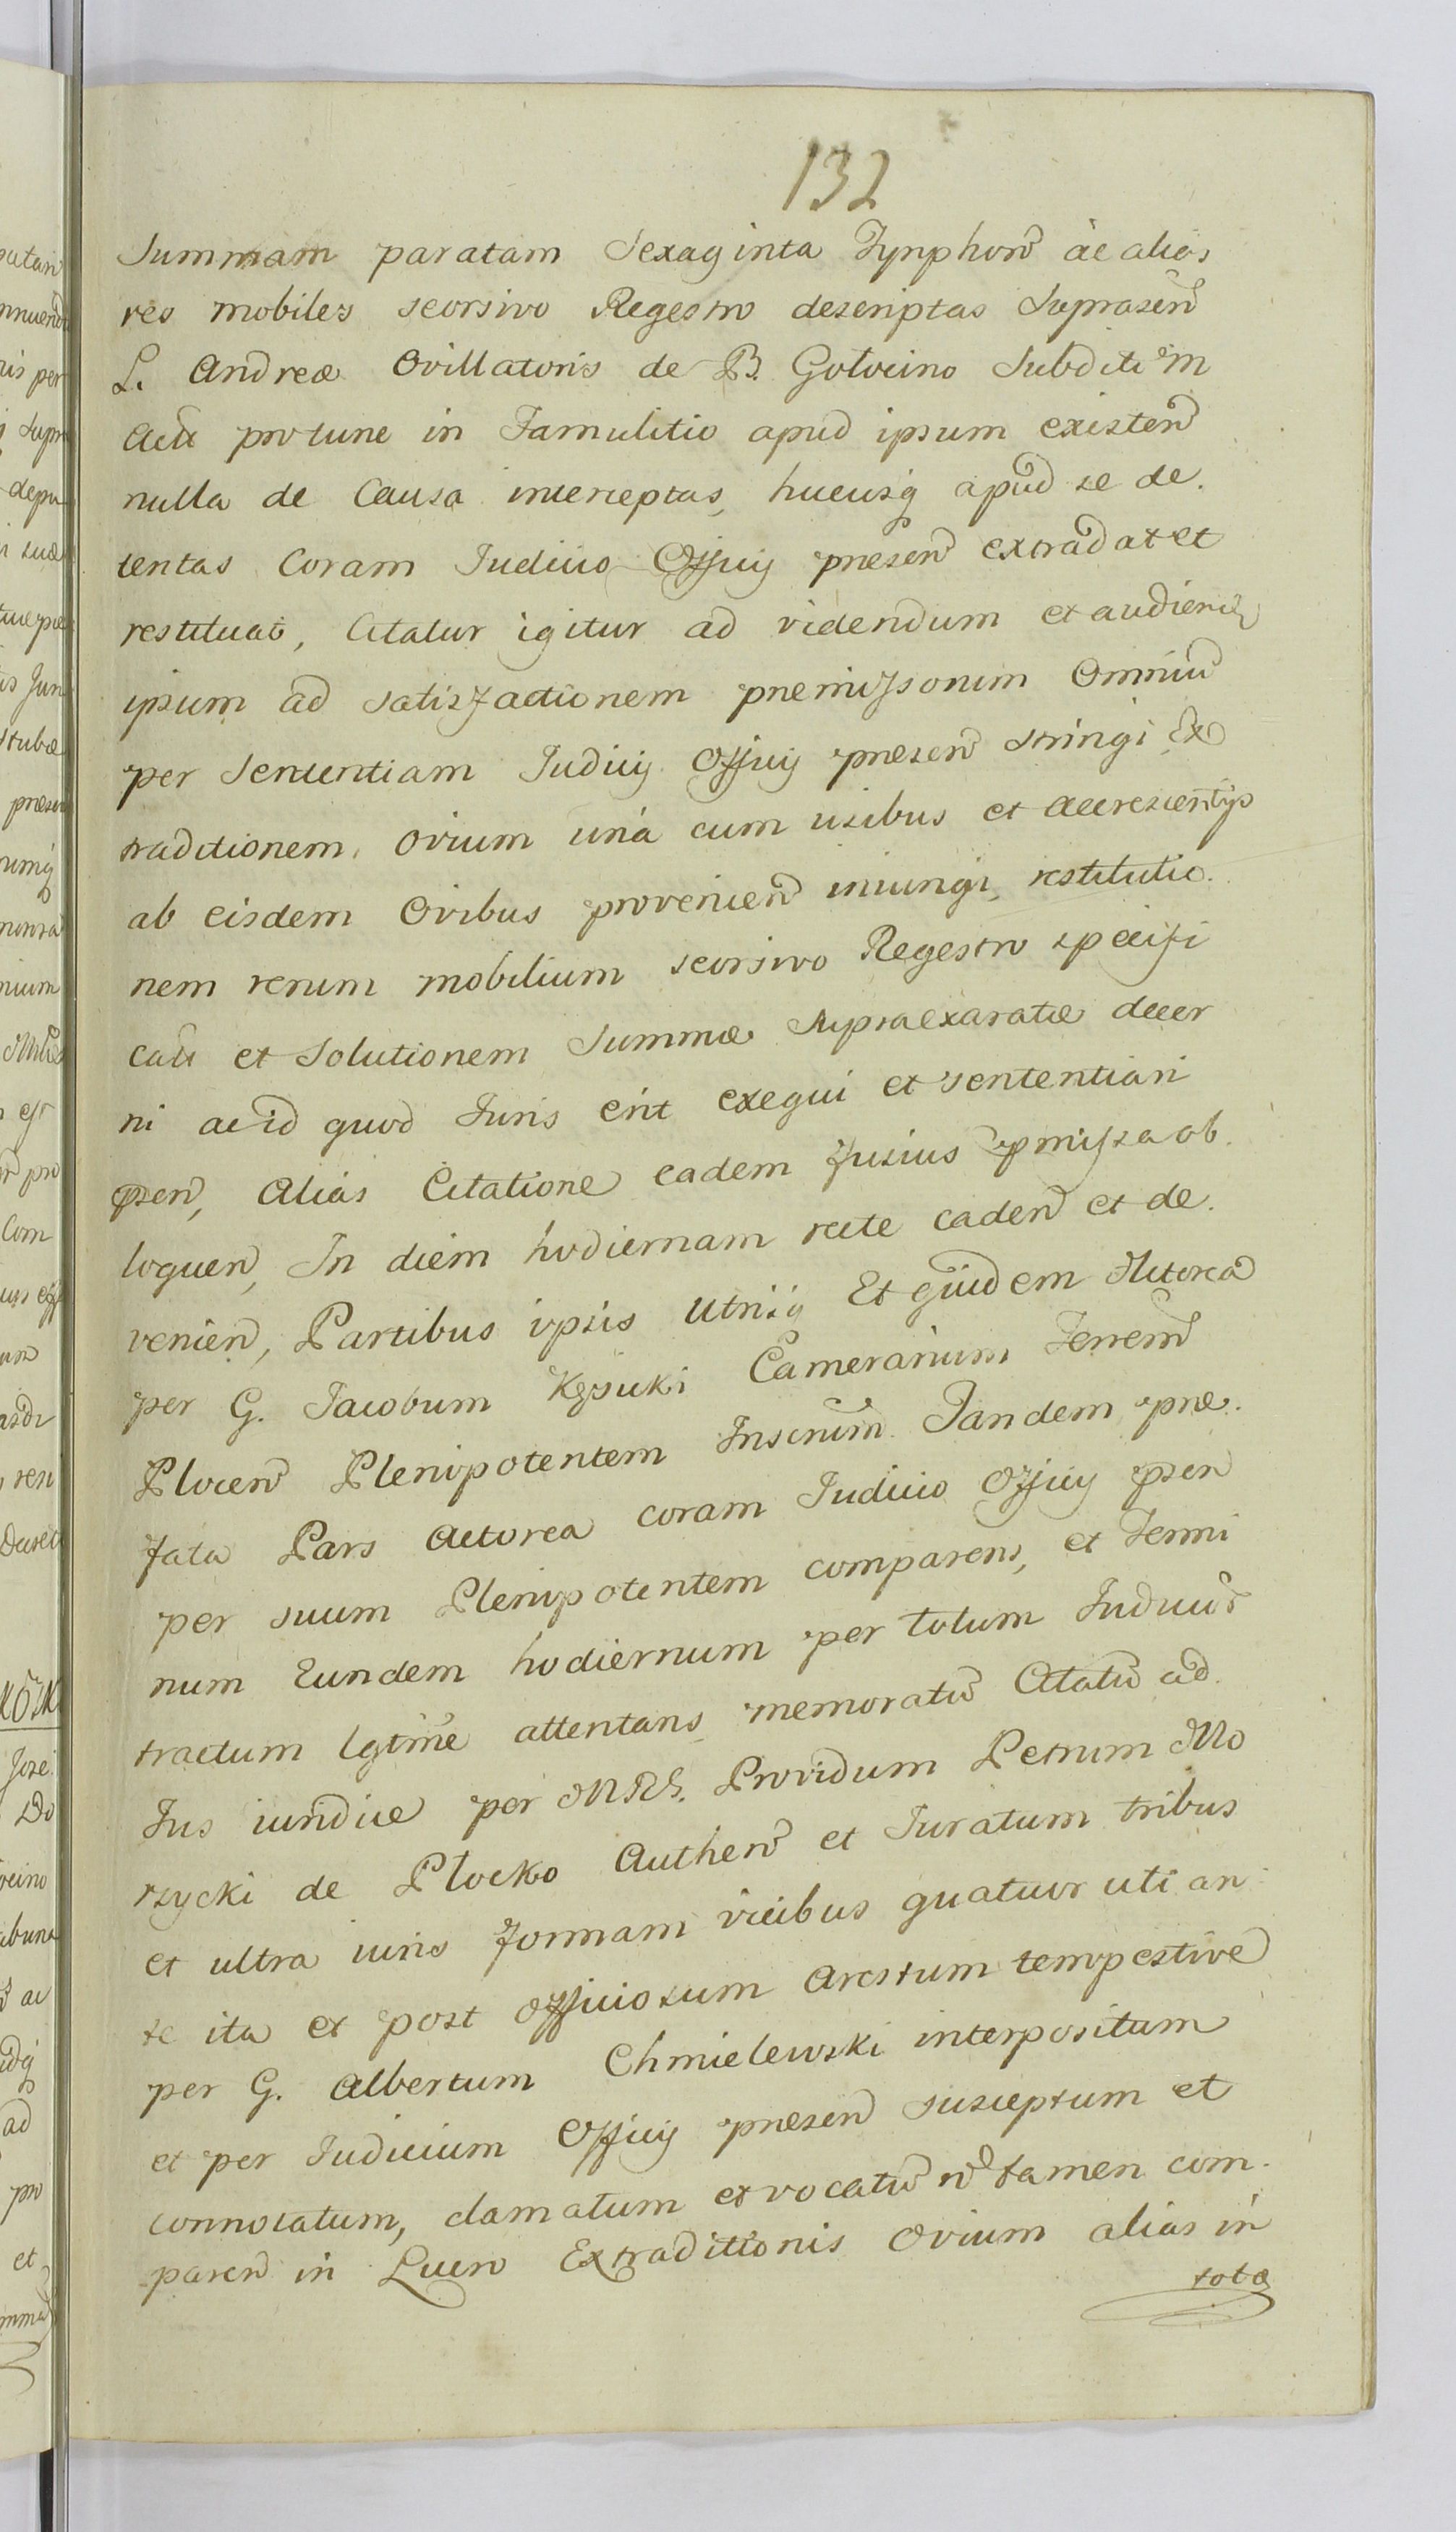 132
Summam paratam Sexaginta Tynphorũ ac alias
res mobiles seorsivo Regestro descriptas Suprascrῦ
L. Andreæ Ovillatoris de B. Gołocino Subditi M
Actt pro tunc in Famulitio apud ipsum existeñ
nulla de Causa interceptas, hucusq apud se de.
tentas Coram Iudicio Officij presen̄ extradat et
restituat, Citatur igitur ad videndum et audiend
ipsum ad satisfactionem premissorum Omniũ
per Sententiam Iudicij Officij presen̄ stringi Ex
traditionem, Ovium unà cum usibus et accrescentijs
ab eisdem Ovibus provenien̄ iniungi, restitutio.
nem rerum mobilium seorsivo Regestro specifi
catt et Solutionem Summæ Supraexaratæ decer
ni ac id quod Iuris erit exequi et sententiari
psen̄, Alias Citatione eadem fusius pmissa ob
loquen̄, In diem hodiernam recte caden̄ et de.
venien̄, Partibus ipsis Utrisq Et quidem Actorea
per G. Iacobum Kęsicki Camerarium Terren̄
Plocen̄ Plenipotentem Inscrim̄ Tandem præ.
fata Pars Actorea coram Iudicio Officij psen
per suum Plenipotentem comparens, et Termi
num Eundem hodiernum per totum Iudicior̄
tractum lgtm̄e attentans memoratũ Citatũ ad
Ius iuridice per MRS. Providum Petrum Mo
rzycki de Płocko Authen̄ et Iuratum tribus
et ultra iuris formam vicibus quatuor uti an
te ita et post officiosum Arestum tempestive
per G. Albertum Chmielewski interpositum
et per Iudicium Officij presen̄ susceptum et
connotatum, clamatum et vocatũ n̄ tamen com.
paren̄ in Lucro Extraditionis Ovium alias in
toto